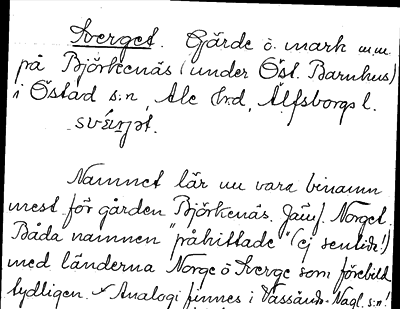 Sverget. Gärde o. mark m.m.
på Björkenäs (under Öst. Barnhus)
i Östad s:n, Ale hd, Älfsborgs l.
Namnet lär nu vara binamn
mest för gården Björkenäs. Jämf. Norget.
Båda namnen "påhittade" (ej sentida!)
med länderna Norge o Sverge som förebild
tydligen. Analogi finnes i Vassända-Nagl. s:n!